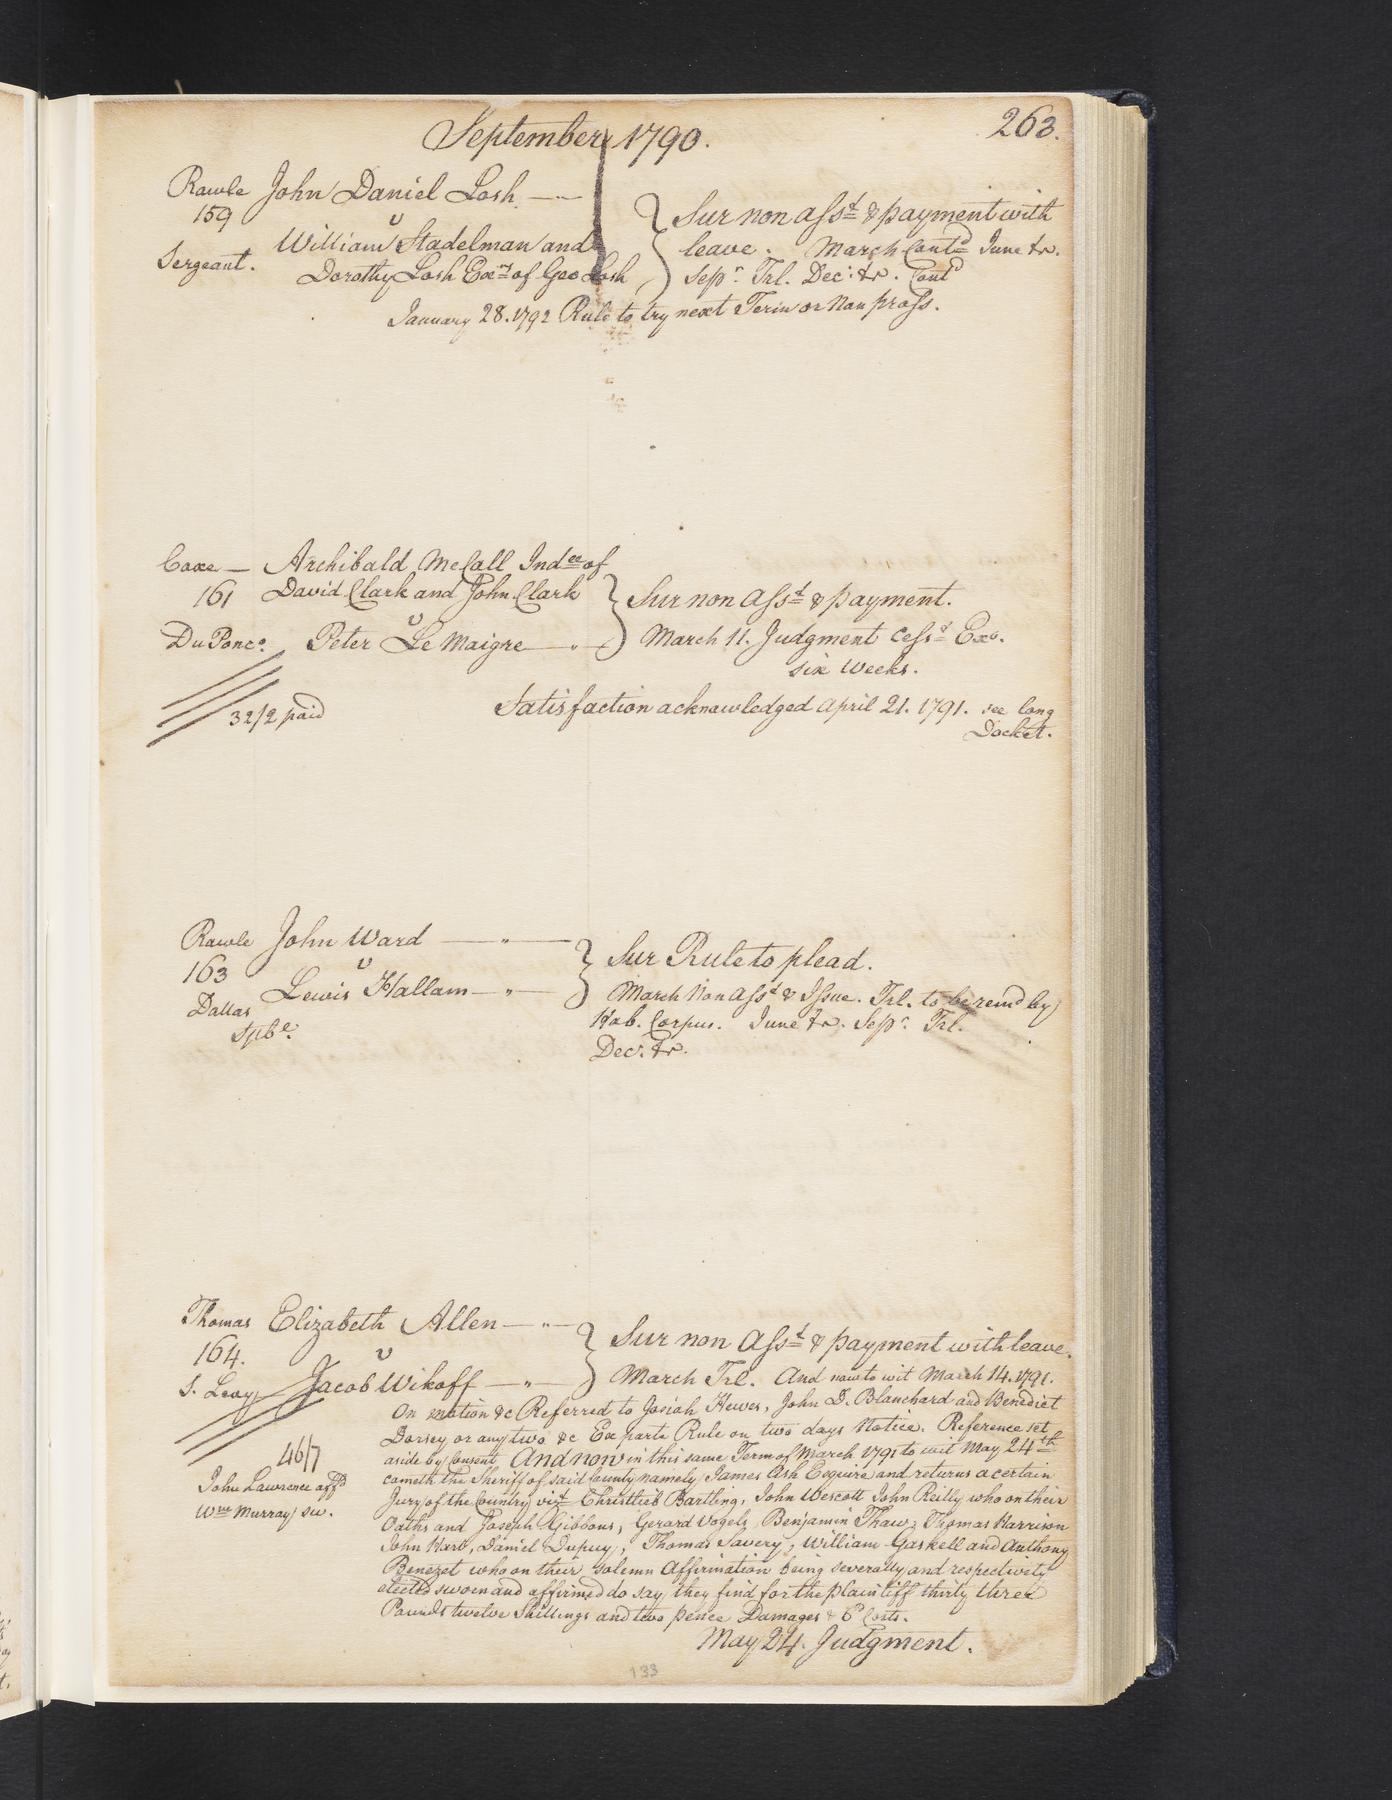 September 1790.
263.
Rawle John Daniel Losh
159 v
William Stadelman and
Sergeant.
Dorothy Losh Exrs of Geo Losh
Sur non Asst & payment with
leave. March Contd June tr.
Sepr. Trl. Decr: tr. Contd
January 28. 1792 Rule to try next Term or Non pross.
Coxe — Archibald McCall Indee of
161 David Clark and John Clark
v
DuPonco. Peter Le Maigre
Sur non Asst & payment.
March 11. Judgment Cesst Exo.
six Weeks.
32/2 paid
Satisfaction acknowledged April 21. 1791. see long
Docket.
Rawle John Ward
163 v
Lewis Hallam
Dallas
Spbe.
Sur Rule to plead.
March Non Asst & Issue. Trl. to be remd by
Hab. Corpus. June tr. Sepr. Trl.
Decr. tr.
Thomas Elizabeth Allen
164. v
S. Levy Jacob Wikoff
Sur non Asst & payment with leave.
March Trl. And now to wit March 14. 1791.
On motion &c Referred to Josiah Hewes, John D. Blanchard and Benedict
Dorsey or any two &c Ex parte Rule on two days Notice. Reference set
aside by Consent, And now in this same Term of March 1791 to wit May 24th
46/7
cometh the Sheriff of said County namely James Ash Esquire and returns a certain
John Lawrence affd
Jury of the Country vizt Christlieb Bartling, John Wescott John Reilly who on their
Wm Murray sw.
Oaths and Joseph Gibbons, Gerard Vogels, Benjamin Thaw, Thomas Harrison
John Hart, Daniel Dupuy, Thomas Savery, William Gaskell and Anthony
Benezet who on their solemn Affirmation being severally and respectively
elected sworn and affirmed do say they find for the plaintiff thirty three
Pounds twelve Shillings and two pence Damages & 6d Costs.
May 24. Judgment.
133